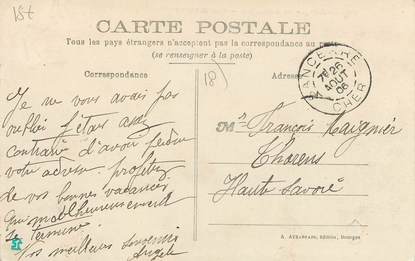 15t
CARTE POSTALE
Tous les pays étrangers n'acceptent pas la correspondance au
(se renseigner à la poste)
Correspondance
Adresse
18
SANCERRE
7e 26
AOUT
06
CHER
Je ne vous avais pas
oublié j'étais assez
contrarié d'avoir perdu
votre adresse profitez
de vos bonnes vacances
qui malheureusement
se termine
Vos meilleurs souvenirs
Angèle
Mr François
Thorens
Haute Savoie
Bourges